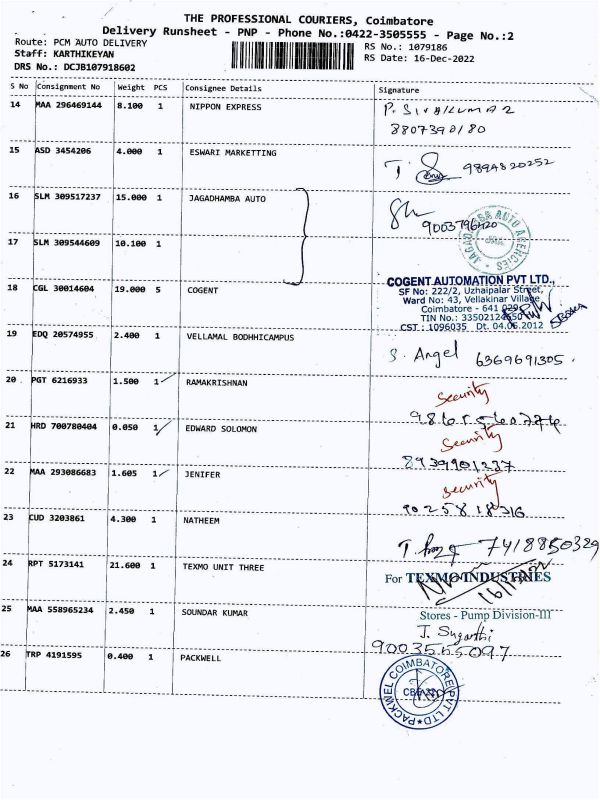 THE PROFESSIONAL COURIERS, Coimbatore
Delivery Runsheet - PNP - Phone No.:0422-3505555 - Page No.:2
Route: PCM AUTO DELIVERY
RS No.: 1079186
Staff: KARTHIKEYAN
RS Date: 16-Dec-2022
DRS No.: DCJB107918602
S No Consignment No Weight PCS Consignee Details Signature
14 MAA 296469144 8.100 1 NIPPON EXPRESS P. SIVAKUMAR
8807390180
15 ASD 3454206 4.000 1 ESWARI MARKETTING 9894820252
16 SLM 309517237 15.000 1 JAGADHAMBA AUTO
9003796420
17 SLM 309544609 10.100 1
JAGADAMBA AUTO AGENCIES
18 CGL 30014604 19.000 5 COGENT
COGENT AUTOMATION PVT LTD.,
SF No: 222/2, Uzhaipalar Street,
Ward No: 43, Vellakinar Village,
Coimbatore - 641 029
TIN No.: 33502124550
CST : 1096035 Dt. 04.06.2012
19 EDQ 20574955 2.400 1 VELLAMAL BODHHICAMPUS S. Angel 6369691305.
20 PGT 6216933 1.500 1 RAMAKRISHNAN Security
9865560776
21 HRD 700780404 0.050 1 EDWARD SOLOMON Security
8939901237
22 MAA 293086683 1.605 1 JENIFER Security
9025818316
23 CUD 3203861 4.300 1 NATHEEM
7418850329
24 RPT 5173141 21.600 1 TEXMO UNIT THREE For TEXMO INDUSTRIES
16/12/22
Stores - Pump Division-III
25 MAA 558965234 2.450 1 SOUNDAR KUMAR J. Suganthi
9003555097
26 TRP 4191595 0.400 1 PACKWELL
PACKWEL COIMBATORE PVT LTD